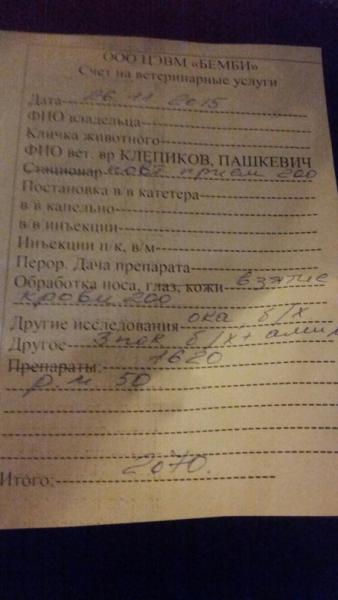 ООО ЦЭВМ «БЕМБИ»
Счет на ветеринарные услуги
Дата 26 11 2015
ФИО владельца
Кличка животного
ФИО вет. вр КЛЕПИКОВ, ПАШКЕВИЧ
Стационар повт. прием 200
Постановка в в катетера
в в капельно
в в инъекции
Инъекции п/к, в/м
Перор. Дача препарата
Обработка носа, глаз, кожи взятие
крови 200
Другие исследования ока б/х
Другое 3 пок б/х + амил
Препараты: 1620
р.м 50
Итого: 2070.